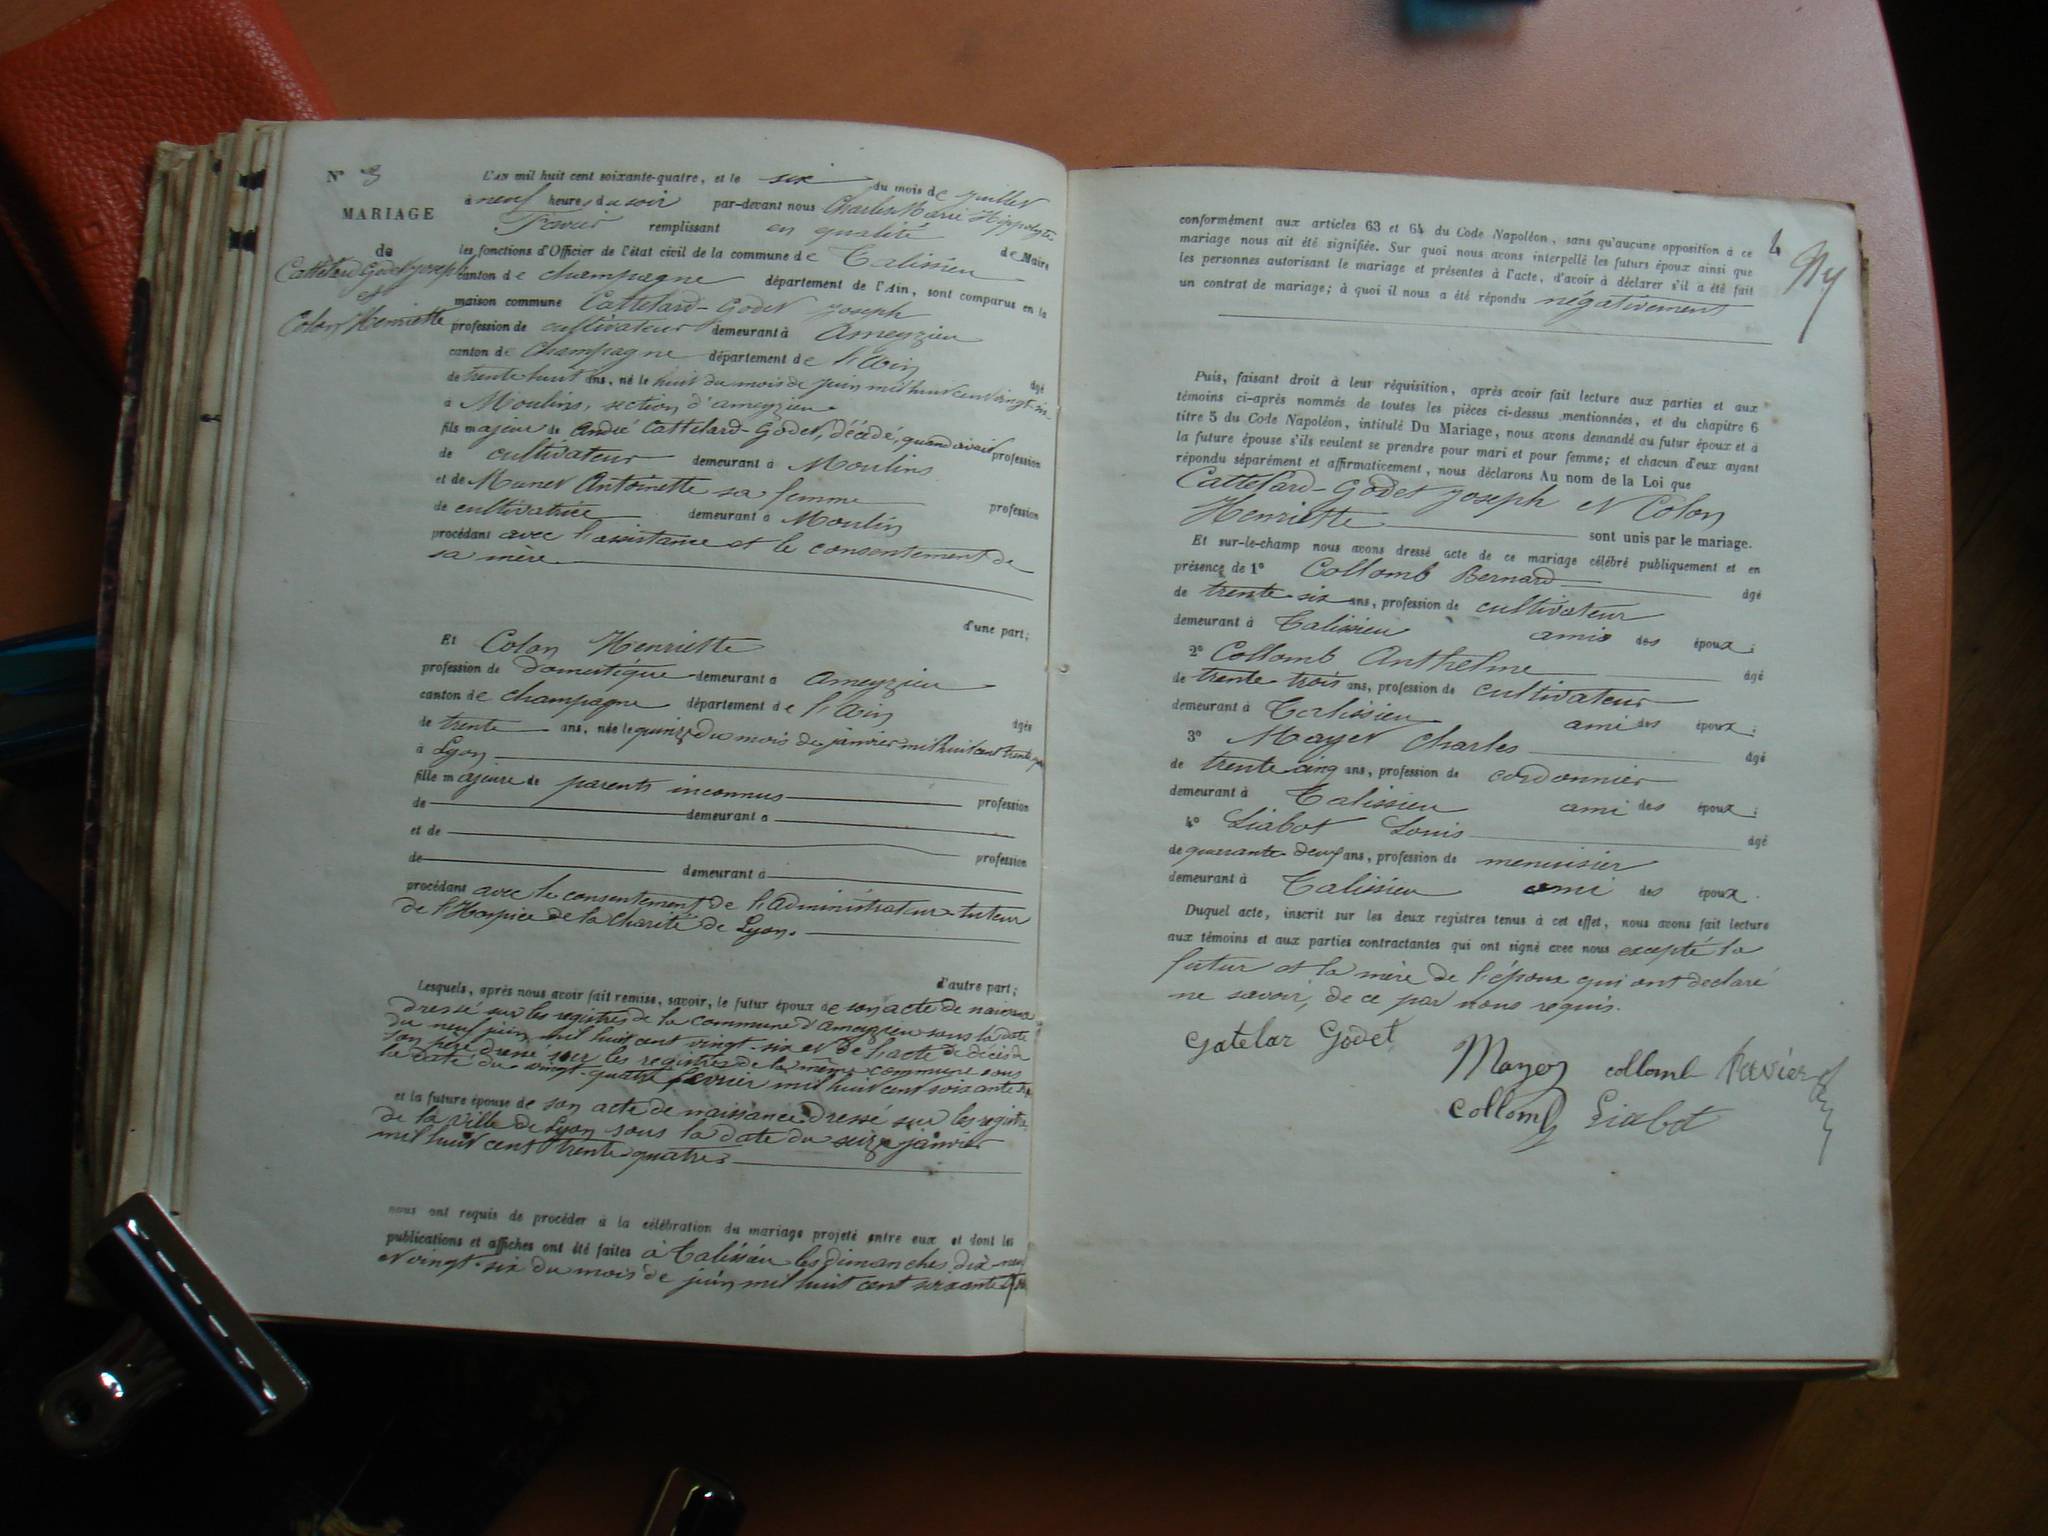 N° 3
MARIAGE
de
Cattelard Godet Joseph
et
Colon Henriette
L'AN mil huit cent soixante-quatre, et le six du mois de Juillet
à neuf heures du soir par-devant nous Charles Marie Hippolyte
Favier remplissant en qualité de Maire
les fonctions d'Officier de l'état civil de la commune de Talissieu
canton de champagne département de l'Ain, sont comparus en la
maison commune Cattelard-Godet Joseph
profession de cultivateur demeurant à Ameyzieu
canton de Champagne département de l'Ain âgé
de trente huit ans, né le huit du mois de juin mil huit cent vingt-six
à Moulins, section d'ameyzieu
fils majeur de André Cattelard-Godet, décédé, quand vivait profession
de cultivateur demeurant à Moulins
et de Munet Antoinette sa femme profession
de cultivatrice demeurant à Moulin
procédant avec l'assistance et le consentement de
sa mère
d'une part;
Et Colon Henriette
profession de domestique demeurant à Ameyzieu
canton de champagne département de l'Ain âgée
de trente ans, née le quinze du mois de janvier mil huit cent trente
à Lyon
fille majeure de parents inconnus profession
de demeurant à
et de profession
de demeurant à
procédant avec le consentement de l'Administrateur-tuteur
de l'Hospice de la Charité de Lyon.
d'autre part;
Lesquels, après nous avoir fait remise, savoir, le futur époux de son acte de naissance
dressé sur les registres de la commune d'Ameyzieu sous la date
du neuf juin mil huit cent vingt-six et de l'acte de décès de
son père dressé sur les registres de la même commune sous
la date du vingt-quatre février mil huit cent soixante
et la future épouse de son acte de naissance dressé sur les registres
de la ville de Lyon sous la date du seize janvier
mil huit cent trente quatre
nous ont requis de procéder à la célébration du mariage projeté entre eux et dont les
publications et affiches ont été faites à Talissieu les dimanches dix-neuf
et vingt-six du mois de juin mil huit cent soixante
4
conformément aux articles 63 et 64 du Code Napoléon, sans qu'aucune opposition à ce
mariage nous ait été signifiée. Sur quoi nous avons interpellé les futurs époux ainsi que
les personnes autorisant le mariage et présentes à l'acte, d'avoir à déclarer s'il a été fait
un contrat de mariage; à quoi il nous a été répondu négativement
Puis, faisant droit à leur réquisition, après avoir fait lecture aux parties et aux
témoins ci-après nommés de toutes les pièces ci-dessus mentionnées, et du chapitre 6
titre 5 du Code Napoléon, intitulé Du Mariage, nous avons demandé au futur époux et à
la future épouse s'ils veulent se prendre pour mari et pour femme; et chacun d'eux ayant
répondu séparément et affirmativement, nous déclarons Au nom de la Loi que
Cattelard-Godet Joseph et Colon
Henriette sont unis par le mariage.
Et sur-le-champ nous avons dressé acte de ce mariage célébré publiquement et en
présence de 1° Collomb Bernard âgé
de trente-six ans, profession de cultivateur
demeurant à Talissieu ami des époux;
2° Collomb Anthelme âgé
de trente-trois ans, profession de cultivateur
demeurant à Talissieu ami des époux;
3° Mayet Charles âgé
de trente cinq ans, profession de cordonnier
demeurant à Talissieu ami des époux;
4° Liabot Louis âgé
de quarante-deux ans, profession de menuisier
demeurant à Talissieu ami des époux.
Duquel acte, inscrit sur les deux registres tenus à cet effet, nous avons fait lecture
aux témoins et aux parties contractantes qui ont signé avec nous excepté la
futur et la mère de l'époux qui ont déclaré
ne savoir, de ce par nous requis.
Gatelar Godet
Mayet collomb Favier
collomb Liabot